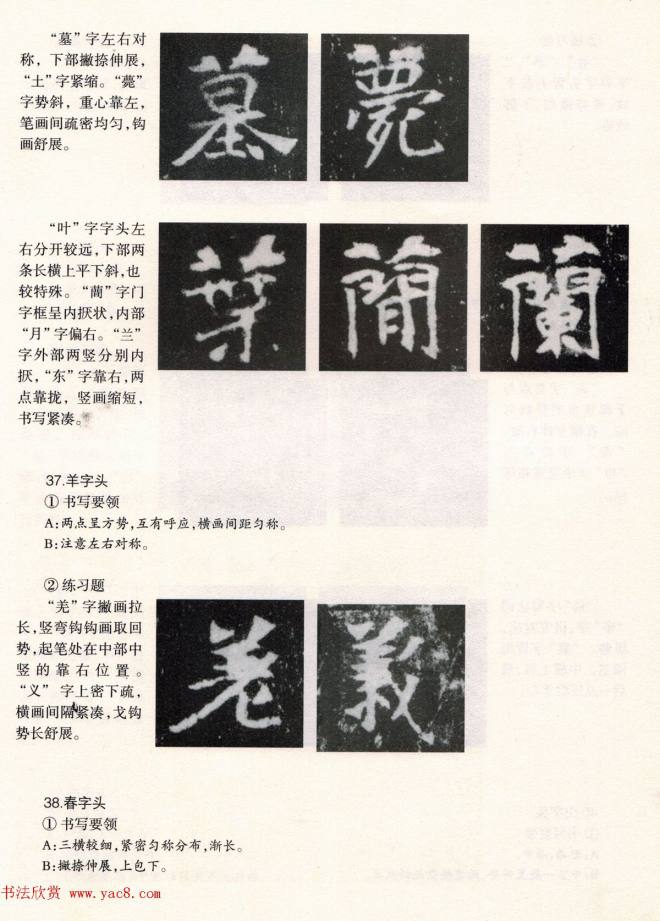 “墓”字左右对
称，下部撇捺伸展，
“土”字紧缩。“薨”
字势斜，重心靠左，
笔画间疏密均匀，钩
画舒展。
墓 薨
“叶”字字头左
右分开较远，下部两
条长横上平下斜，也
较特殊。“蕳”字门
字框呈内抧状，内部
“月”字偏右。“兰”
字外部两竖分别内
抧，“东”字靠右，两
点靠拢，竖画缩短，
书写紧凑。
葉 蕳 蘭
37.羊字头
①书写要领
A:两点呈方势，互有呼应，横画间距匀称。
B:注意左右对称。
②练习题
“羌”字撇画拉
长，竖弯钩钩画取回
势，起笔处在中部中
竖的靠右位置。
“义”字上密下疏，
横画间隔紧凑，戈钩
势长舒展。
羌 義
38.春字头
①书写要领
A:三横较细，紧密匀称分布，渐长。
B:撇捺伸展，上包下。
书法欣赏 www.yac8.com